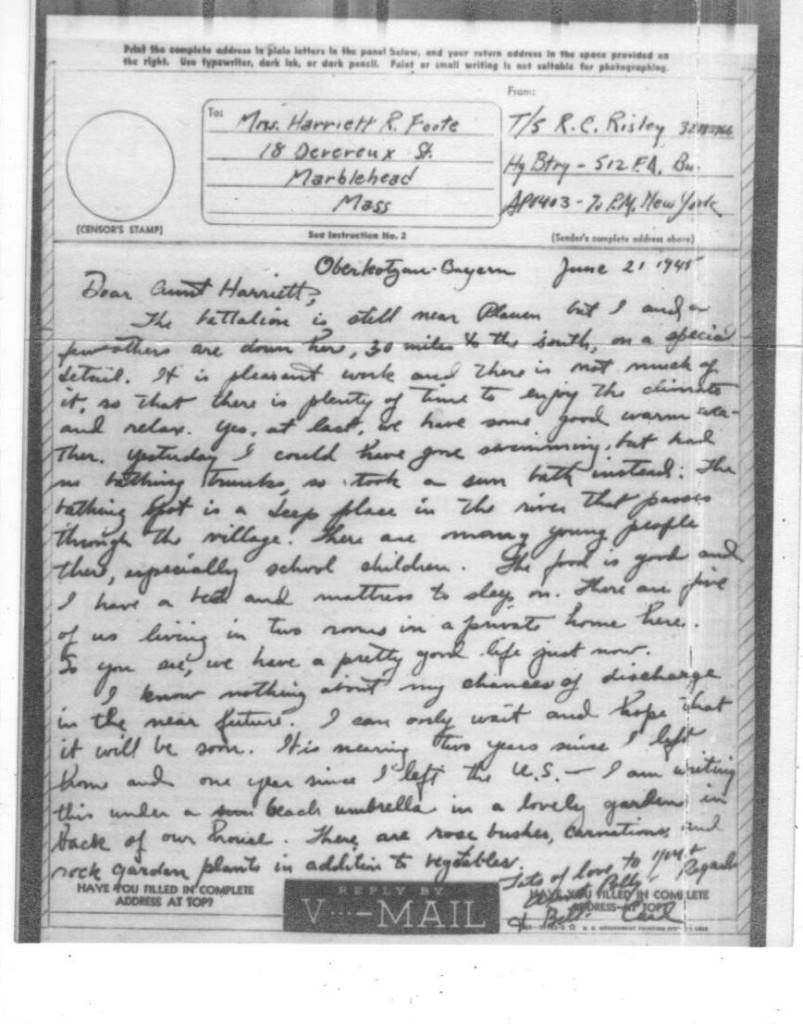 Print the complete address in plain letters in the panel below, and your return address in the space provided on
the right. Use typewriter, dark ink, or dark pencil. Faint or small writing is not suitable for photographing.
To:
Mrs. Harriett R. Foote
18 Devereux St.
Marblehead
Mass
From:
T/5 R. C. Risley
Hq Btry - 512 F.A. Bn.
APO 403 - % P.M. New York
(CENSOR'S STAMP)
See Instruction No. 2
(Sender's complete address above)
Oberkotzau-Bayern June 21 1945
Dear Aunt Harriett,
The battalion is still near Plauen but I and a
few others are down here, 30 miles to the south, on a special
detail. It is pleasant work and there is not much of
it, so that there is plenty of time to enjoy the climate
and relax. Yes, at last, we have some good warm wea-
ther. Yesterday I could have gone swimming, but had
no bathing trunks, so took a sun bath instead. The
bathing spot is a deep place in the river that passes
through the village. There are many young people
there, especially school children. The food is good and
I have a bed and mattress to sleep on. There are five
of us living in two rooms in a private home here.
So you see, we have a pretty good life just now.
I know nothing about my chances of discharge
in the near future. I can only wait and hope that
it will be soon. It is nearing two years since I left
home and one year since I left the U.S. — I am writing
this under a sun beach umbrella in a lovely garden in
back of our house. There are rose bushes, carnations, and
rock garden plants in addition to vegetables.
Lots of love to you & Regards
Polly
& Bell. Carl
HAVE YOU FILLED IN COMPLETE
ADDRESS AT TOP?
REPLY BY
V···—MAIL
HAVE YOU FILLED IN COMPLETE
ADDRESS AT TOP?